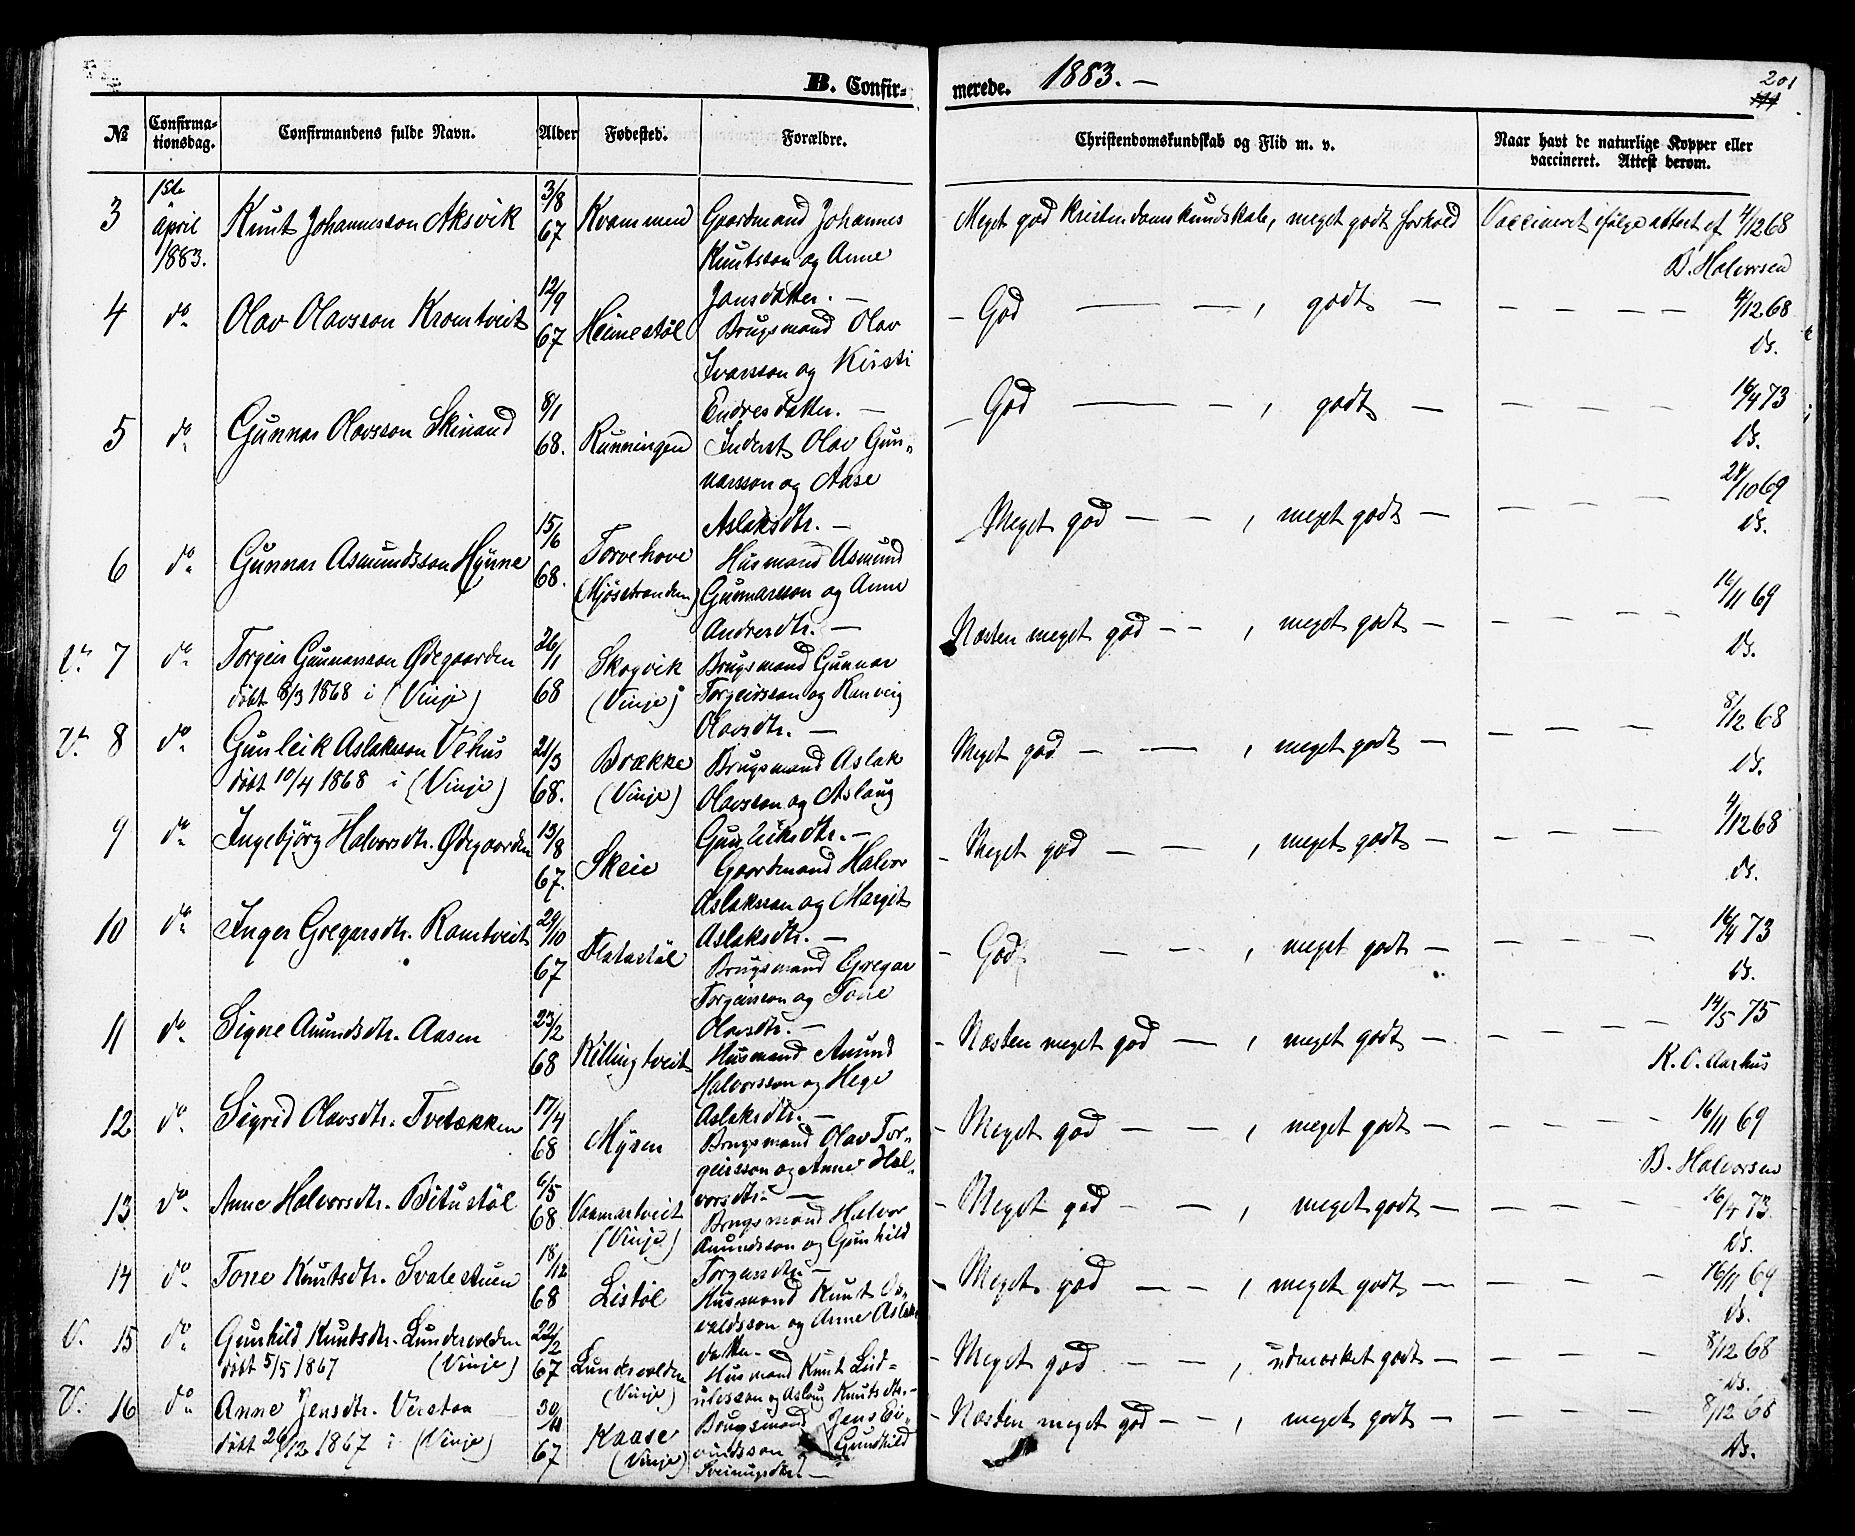 B. Confir-
merede. 1883. —
201
№
Confirma-
tionsdag.
Confirmandens fulde Navn.
Alder
Fødested.
Forældre.
Christendomskundskab og Flid m. v.
Naar havt de naturlige Kopper eller
vaccineret. Attest derom.
3 1ste April 1883. Knut Johannesson Aksvik 3/8 67 Kvammen Gaardmand Johannes
Knutsson og Anne
Jonsdatter. —
Meget god kristendomskundskab, meget godt forhold Vaccineret ifølge attest af 4/12 68
B. Halvorsen
4 do Olav Olavsson Kromtveit 12/9 67 Heimestøl Brugsmand Olav
Ivarsson og Kirsti
Endresdatter. —
— God — —, godt — — — — — 4/12 68
ds.
5 do Gunnar Olavsson Skinand 8/1 68. Runningen Inderst Olav Gun-
narsson og Aase
Aslaksdtr. —
— God — —, godt — — — — — 16/4 73
ds.
6 do Gunnar Asmundsson Hynne 15/6 68. Torvehove
(Mjøsstranden)
Husmand Asmund
Gunnarsson og Anne
Andresdtr. —
Meget god — —, meget godt — — — — 21/10 69
ds.
V. 7 do Torgeir Gunnarsson Ødegaarden
døbt 8/3 1868 i (Vinje)
26/1 68 Skogvik
(Vinje)
Brugsmand Gunnar
Torgeirsson og Ranveig
Olavsdtr. —
Næsten meget god — —, meget godt — — — — — 16/11 69
ds.
V. 8 do Gunleik Aslaksson Vehus
døbt 10/4 1868 i (Vinje)
21/3 68. Brække
(Vinje)
Brugsmand Aslak
Olavsson og Aslaug
Gunleiksdtr. —
Meget god — —, meget godt — — — — — 8/12 68
ds.
9 do Ingebjörg Halvorsdtr. Ødegaarden 13/8 67. Skeie Gaardmand Halvor
Aslaksson og Margit
Aslaksdtr. —
— Meget god — —, meget godt — — — — 4/12 68
ds.
10 do Inger Gregarsdtr. Romtveit 29/10 67 Flatastøl Brugsmand Gregar
Torgeirsson og Tone
Olavsdtr. —
— God — —, meget godt — — — — — 16/4 73
ds.
11 do Signe Amundsdtr. Aasen 23/2 68 Killingtveit Husmand Amund
Halvorsson og Hege
Aslaksdtr. —
— Næsten meget god —, meget godt — — — — — 14/5 75
K. O. Aarhus
12 do Sigrid Olavsdtr. Tveitækken 17/4 68 Myren Brugsmand Olav Tor-
geirsson og Anne Hal-
vorsdtr. —
— Meget god — —, meget godt — — — — — 16/11 69
B. Halvorsen
13 do Anne Halvorsdtr. Bitustöl 6/5 68 Vaamartveit
(Vinje)
Brugsmand Halvor
Amundsson og Gunhild
Torgersdtr. —
— Meget god — —, meget godt — — — — — 16/4 73
ds.
14 do Tone Knutsdtr. Svalestuen 18/12 68 Listöl Husmand Knut Os-
valdsson og Anne Aslaks-
datter. —
— Meget god — —, meget godt — — — — — 16/11 69
ds.
V. 15 do Gunhild Knutsdtr. Lundevolden
døbt 5/5 1867 (Vinje)
22/2 67 Lundevolden
(Vinje)
Husmand Knut
og Aslaug Knutsdtr. —
— Meget god — —, udmærket godt — — — — — 8/12 68
ds.
V. 16 do Anne Jensdtr. Verstaa
døbt 26/12 1867 i (Vinje)
30/11 67 Kaase
(Vinje)
Brugsmand Jens Ei-
vindsson Gunhild
Sveinungsdtr. —
— Næsten meget god — —, meget godt — — — — — 8/12 68
ds.